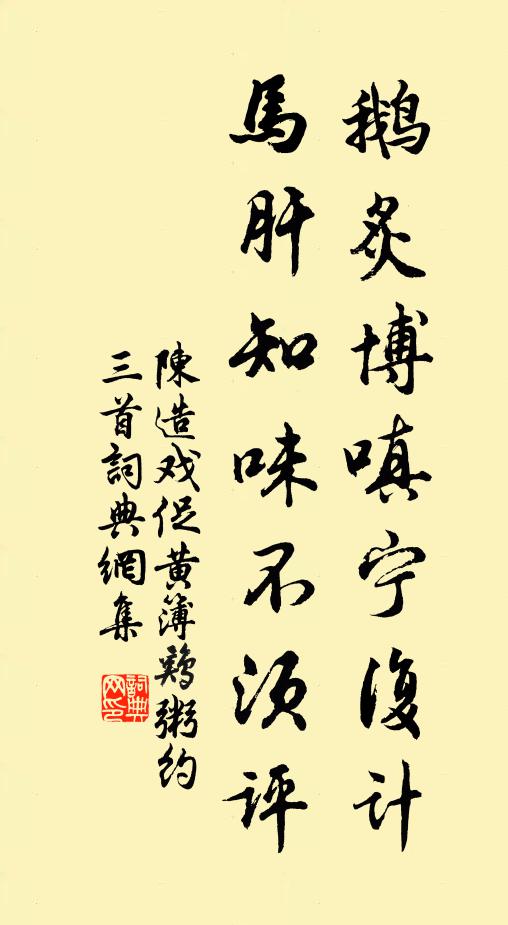 鹅炙博嗔宁復计
馬肝知味不须评
陳造戏促黄簿鷄粥约
三首詞典網集
詞典网印